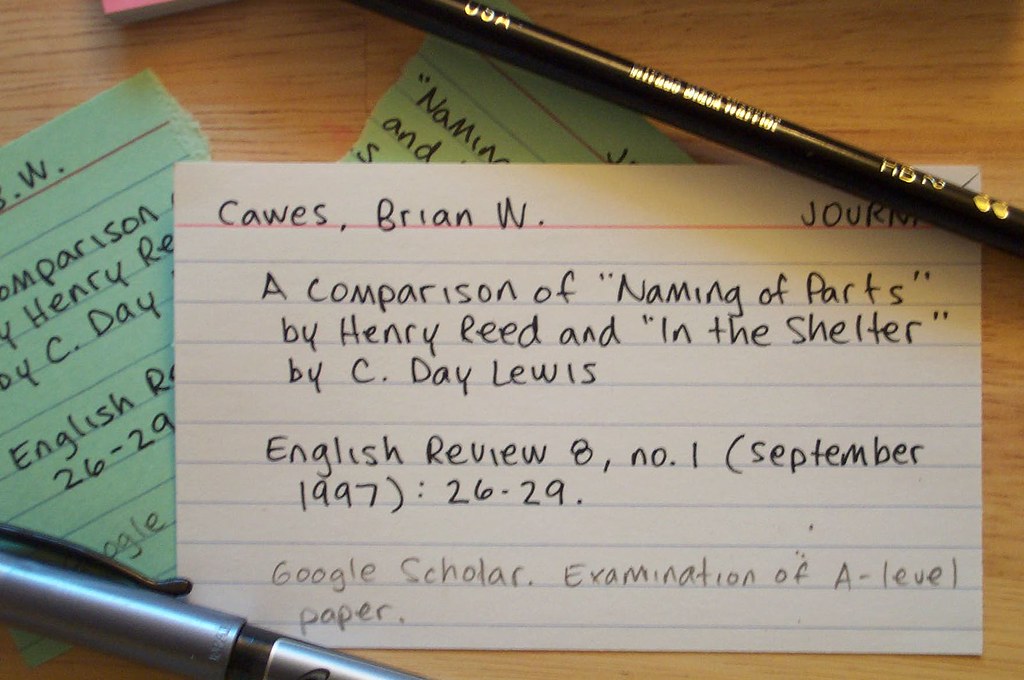 USA
HB 2
"Naming
and
B.W.
omparison
y Henry Re
by C. Day
English Re
26-29
ogle
Cawes, Brian W. JOURN
A comparison of "Naming of Parts"
by Henry Reed and "In the Shelter"
by C. Day Lewis
English Review 8, no. 1 (September
1997): 26-29.
Google Scholar. Examination of A-level
paper.